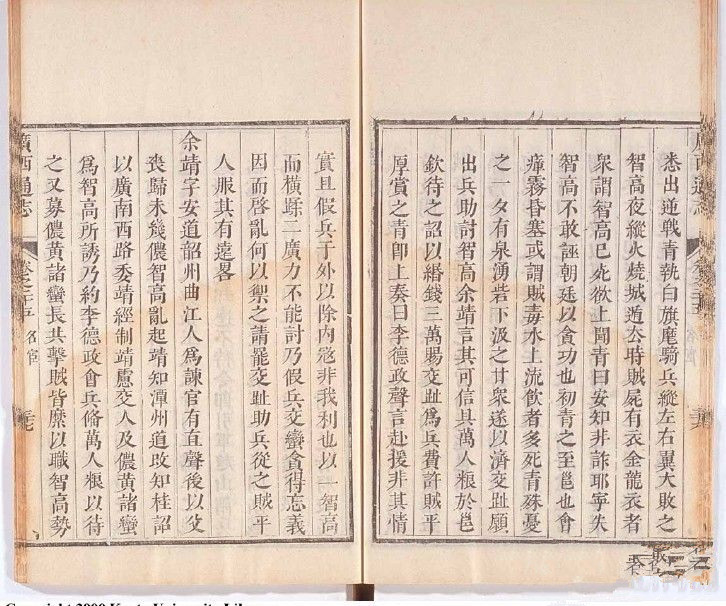 悉出通戰青執白旗麾騎兵縱左右翼大敗之
智高夜縱火燒城遁去時賊屍有衣金龍衣者
衆謂智高已死欲上聞青曰安知非詐耶寧失
智高不敢誣朝廷以貪功也初青之至邕也會
瘴霧昏塞或謂賊毒水上流飲者多死青殊憂
之一夕有泉湧砦下汲之甘衆遂以濟交趾願
出兵助討智高余靖言其可信具萬人糧於邕
欽待之詔以緡錢三萬賜交趾爲兵費許賊平
厚賞之青卽上奏曰李德政聲言赴援非其情
實且假兵于外以除內寇非我利也以一智高
而橫蹂二廣力不能討乃假兵交蠻貪得忘義
因而啓亂何以禦之請罷交趾助兵從之賊平
人服其有遠畧
余靖字安道韶州曲江人爲諫官有直聲後以父
喪歸未幾儂智高亂起靖知潭州道改知桂詔
以廣南西路委靖經制靖慮交人及儂黃諸蠻
爲智高所誘乃約李德政會兵偹萬人糧以待
之又募儂黃諸蠻長共擊賊皆縻以職智高勢
廣西通志
名宦